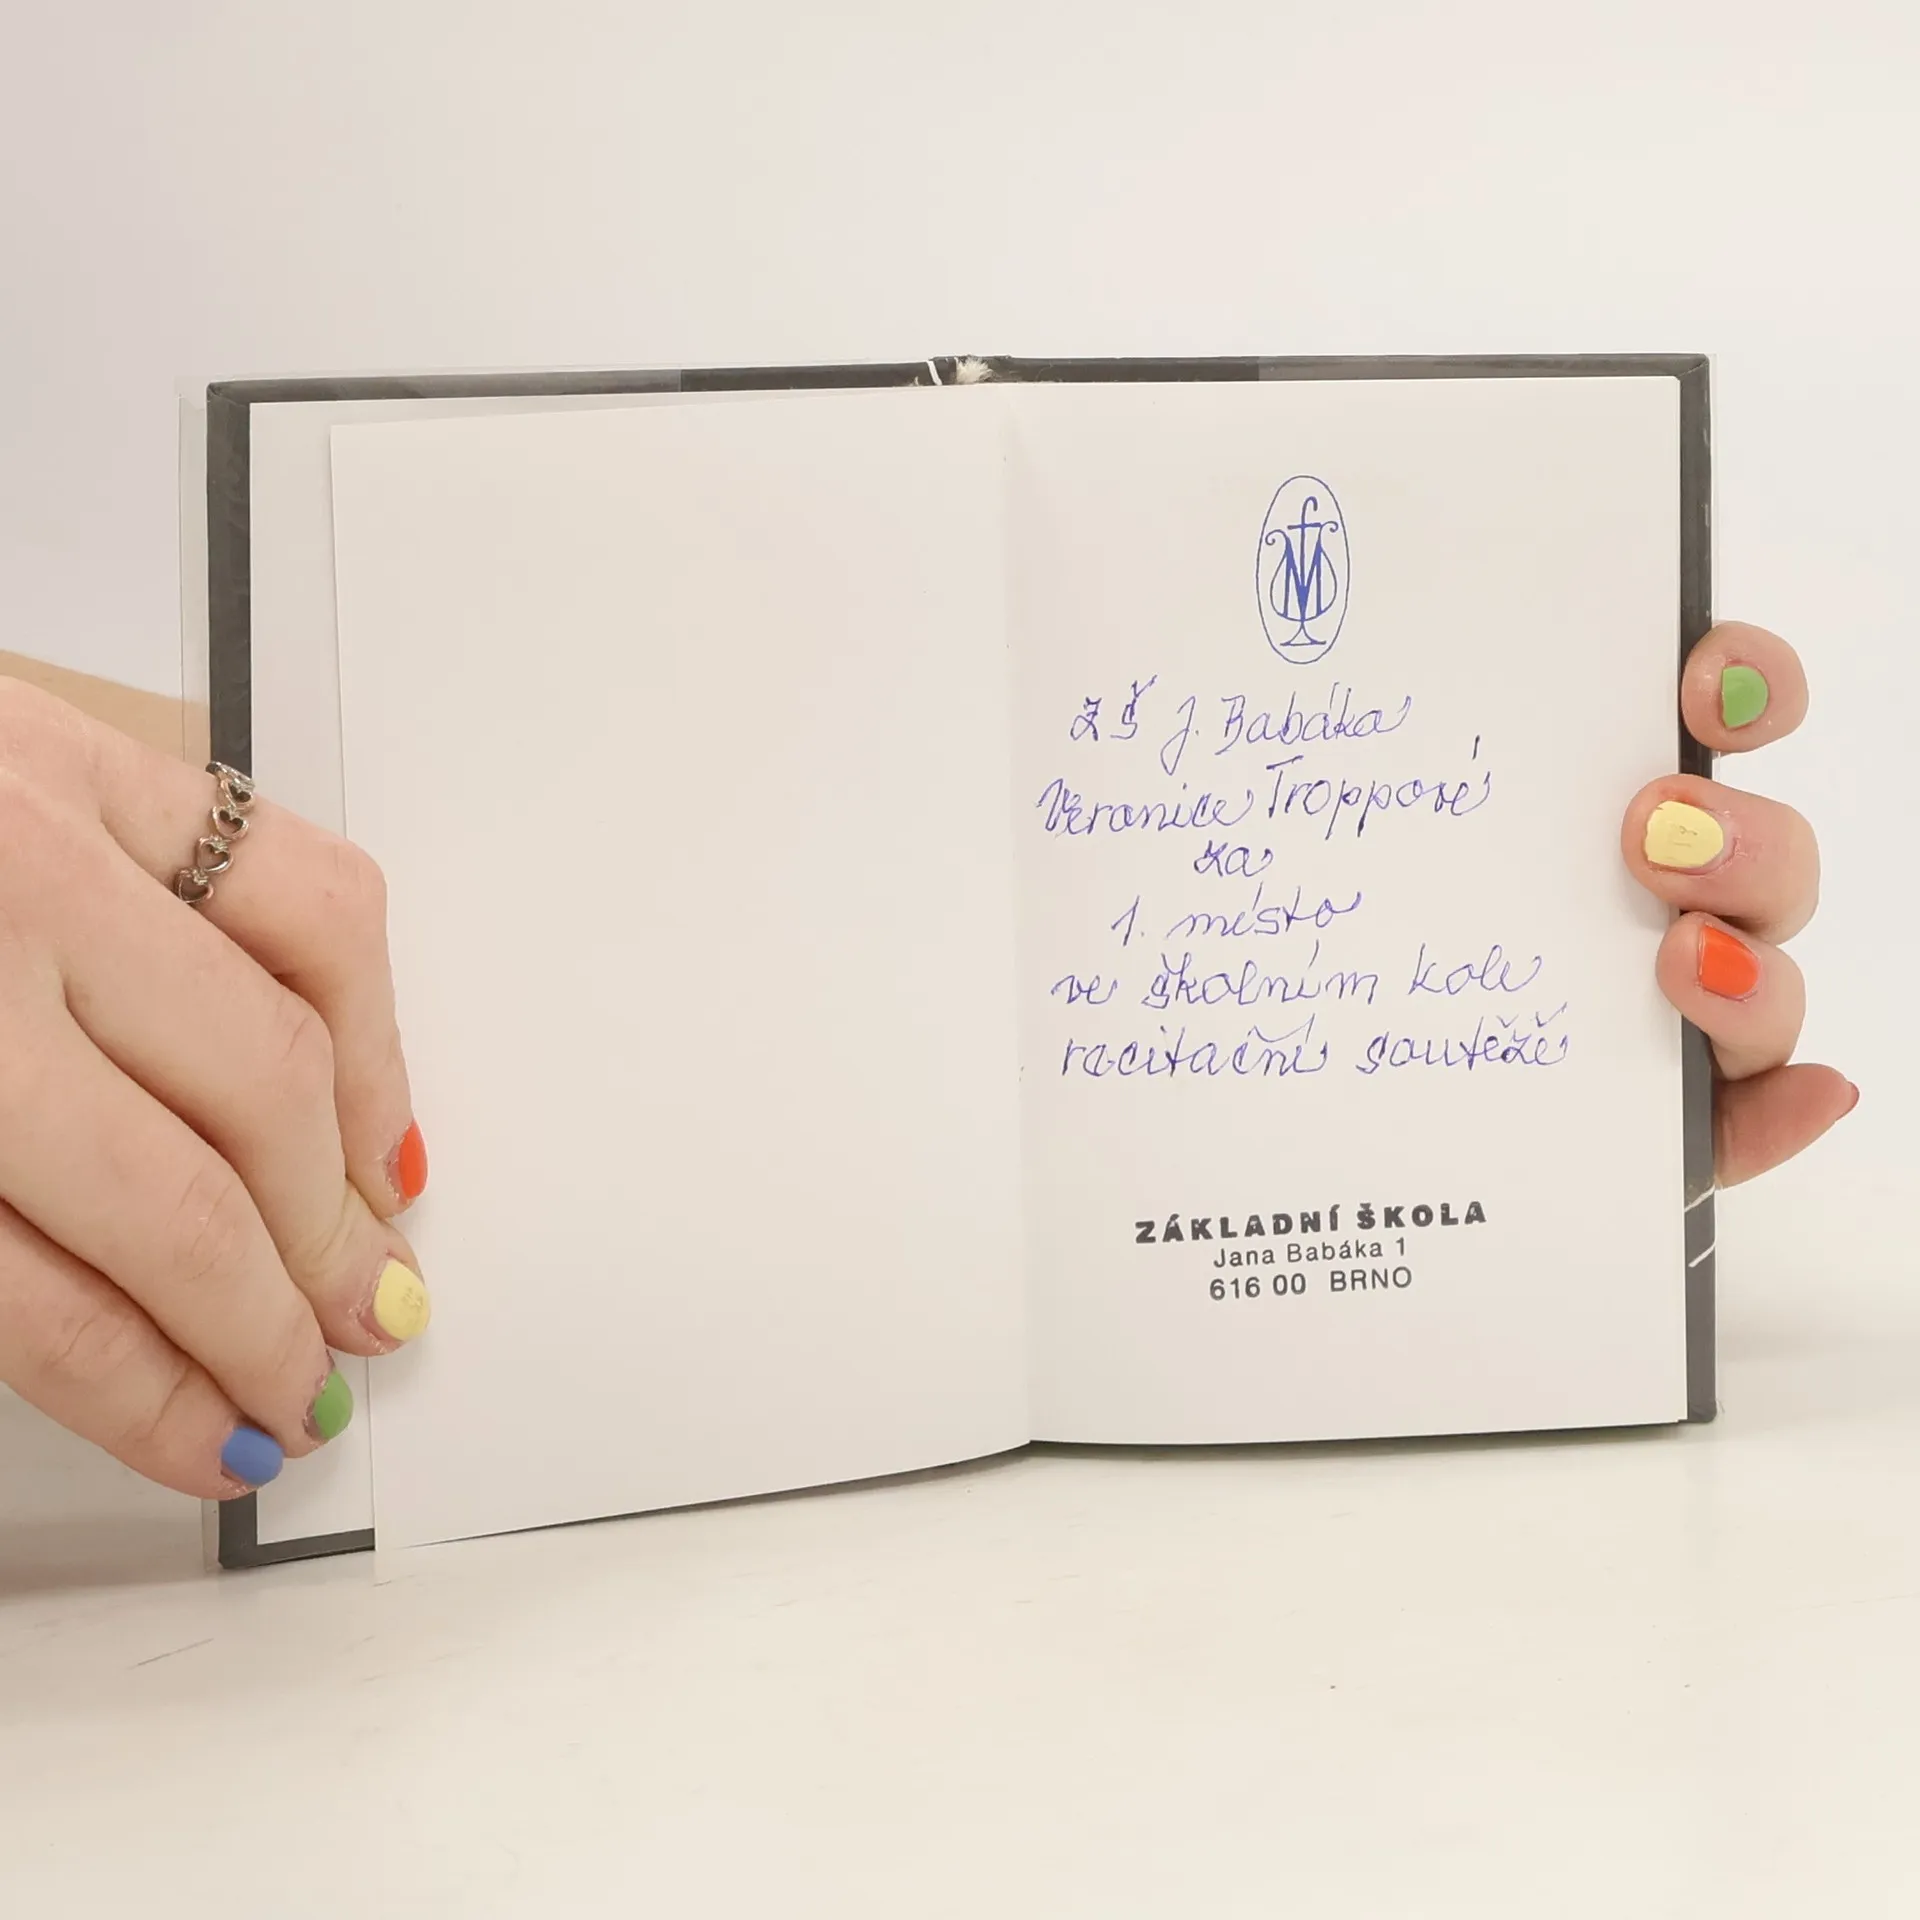 Mf
ZŠ J. Babáka
Veronice Troppové
za
1. místo
ve školním kole
recitační soutěže
ZÁKLADNÍ ŠKOLA
Jana Babáka 1
616 00 BRNO